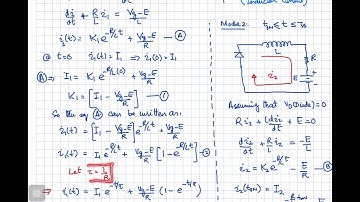 di/dt + R/L i₁ = (Vg-E)/L
i₁(t) = K₁ e^(-R/L t) + (Vg-E)/R — Ⓐ
@ t=0 i₁(t) = I₁ ⇒ i₁(0) = I₁
Ⓐ ⇒ I₁ = K₁ e^(-R/L(0)) + (Vg-E)/R
K₁ = [I₁ - (Vg-E)/R] — ①
So the eq Ⓐ can be written as:
i₁(t) = [I₁ - (Vg-E)/R] e^(-R/L t) + (Vg-E)/R
i₁(t) = I₁ e^(-R/L t) + (Vg-E)/R [1 - e^(-R/L t)] — ②
Let τ = L/R
⇒ i₁(t) = I₁ e^(-t/τ) + (Vg-E)/R (1 - e^(-t/τ))
(inductor current)
Mode 2:
L
R
i₂
E
Assuming that V₀(Diode) = 0
R i₂ + L di₂/dt + E
di₂/dt + R/L i₂ = -E/L
i₂ = K₂ e^(-R/L t) - E/R
= I₂